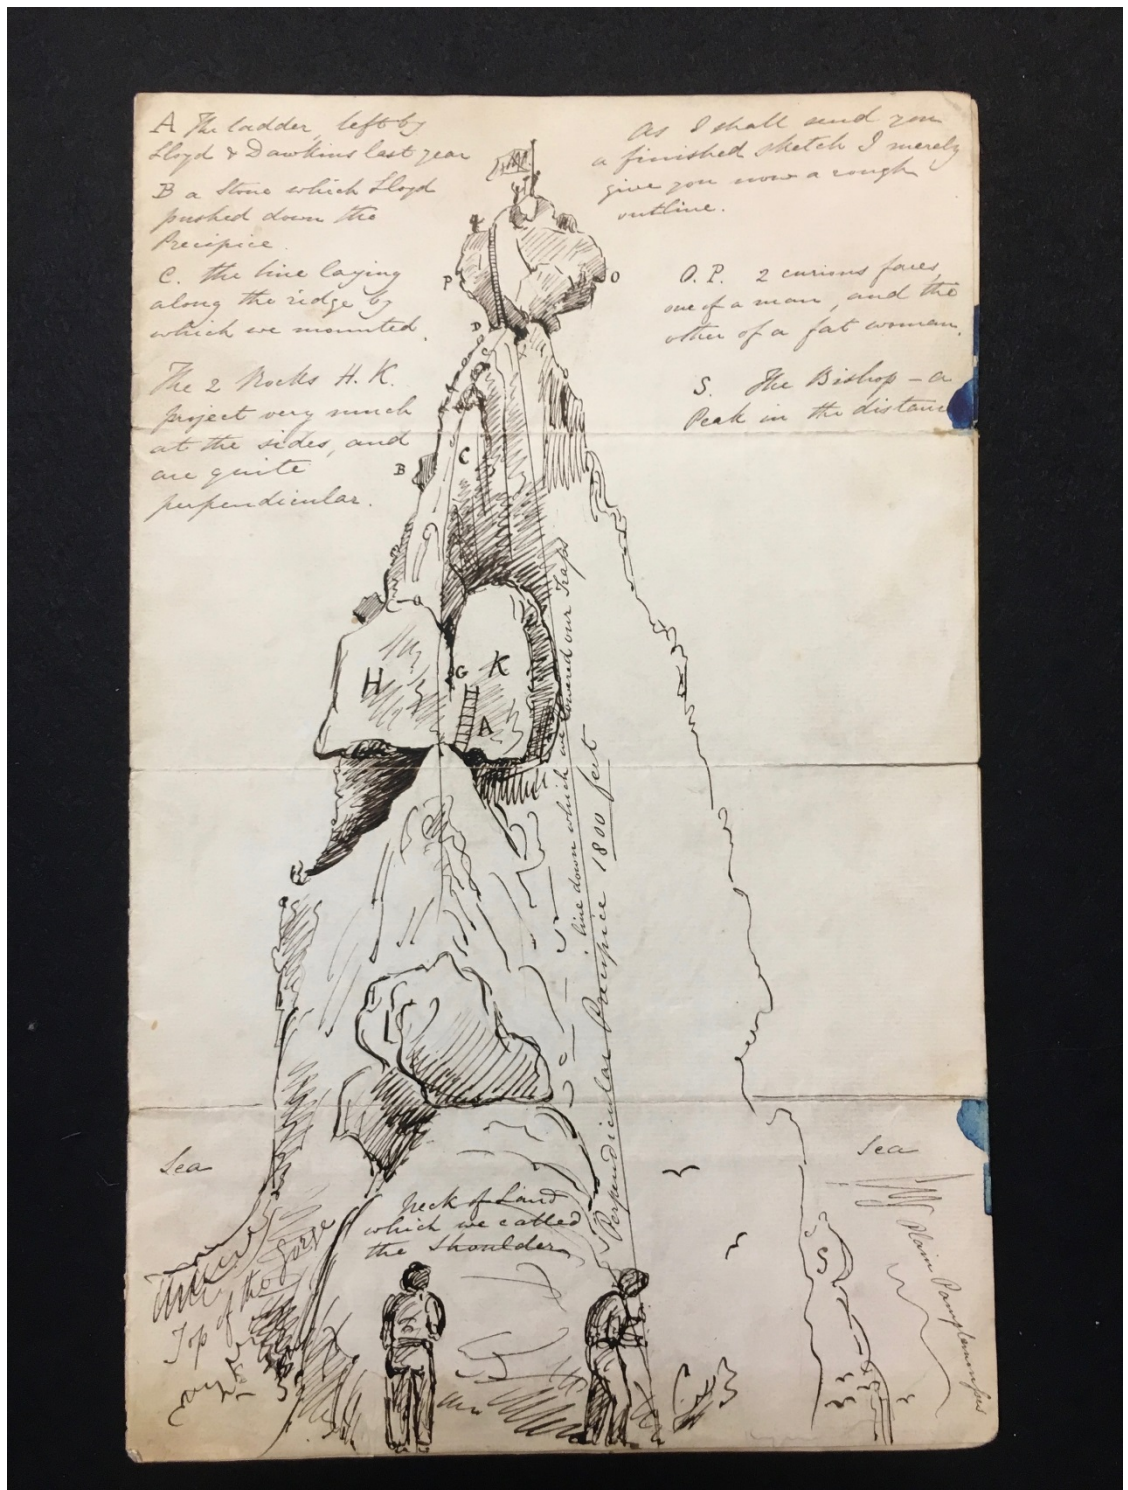 A The ladder, left by
Lloyd & Dawkins last year
B a Stone which Lloyd
pushed down the
Precipice.
C. the line laying
along the ridge by
which we mounted.
The 2 Rocks H. K.
project very much
at the sides, and
are quite
perpendicular.
As I shall send you
a finished sketch I merely
give you now a rough
outline.
O. P. 2 curious faces,
one of a man, and the
other of a fat woman.
S. The Bishop - a
Peak in the distance
P
O
D
C
B
H
G
K
A
line down which we lowered our Traps
Perpendicular Precipice 1800 feet
Sea
Sea
Neck of Land
which we called
the Shoulder
Top of the Gorge
S
Plain Pamplemousses